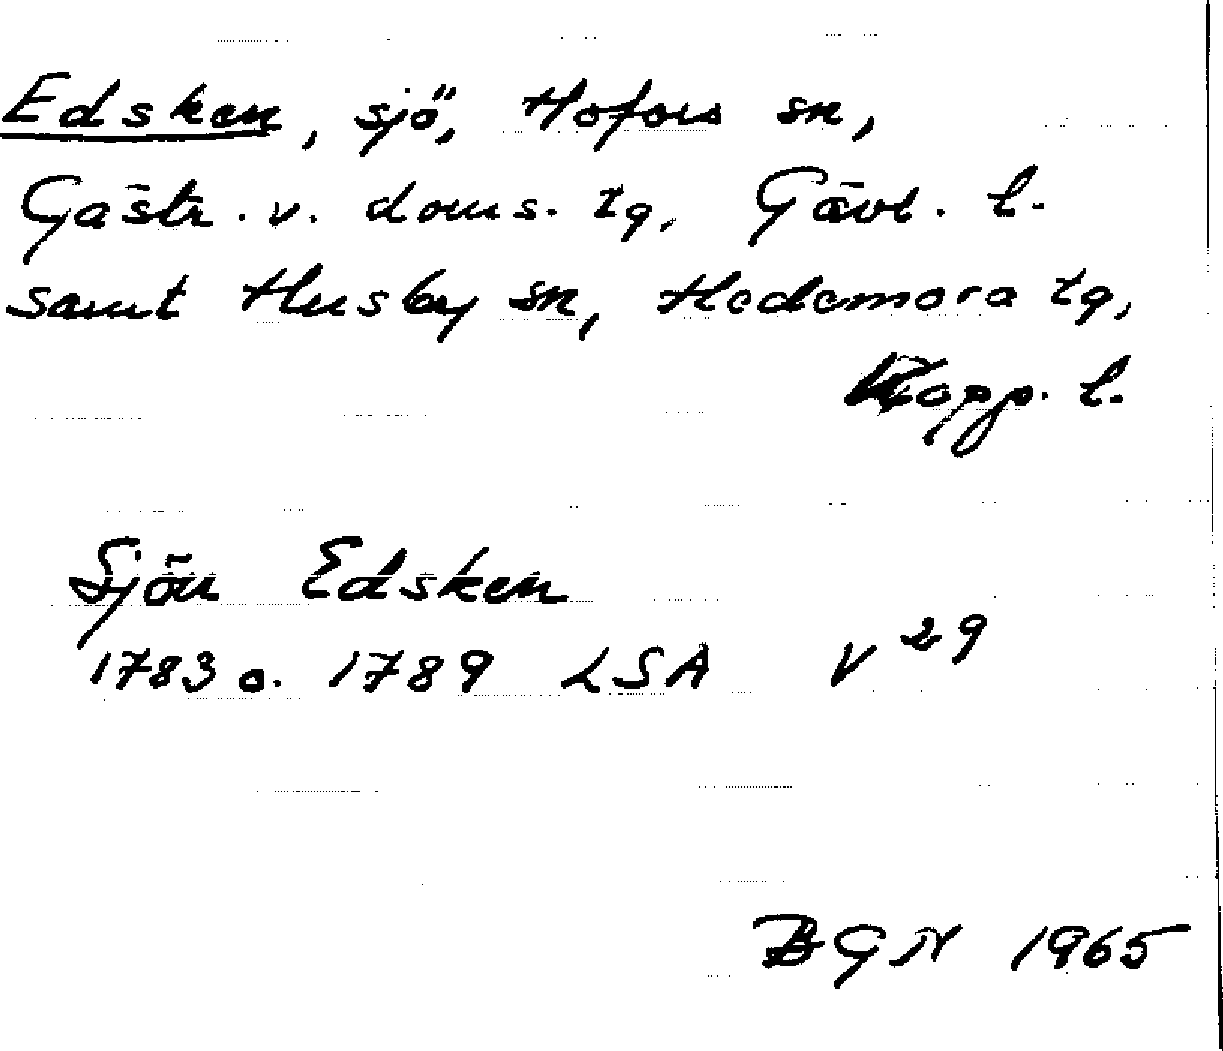 Edsken, sjö, Hofors sn,
Gästr. v. doms. tg, Gävl. l.
samt Husby sn, Hedemora tg,
Kopp. l.
Sjön Edsken
1783 o. 1789 LSA V 29
BGN 1965